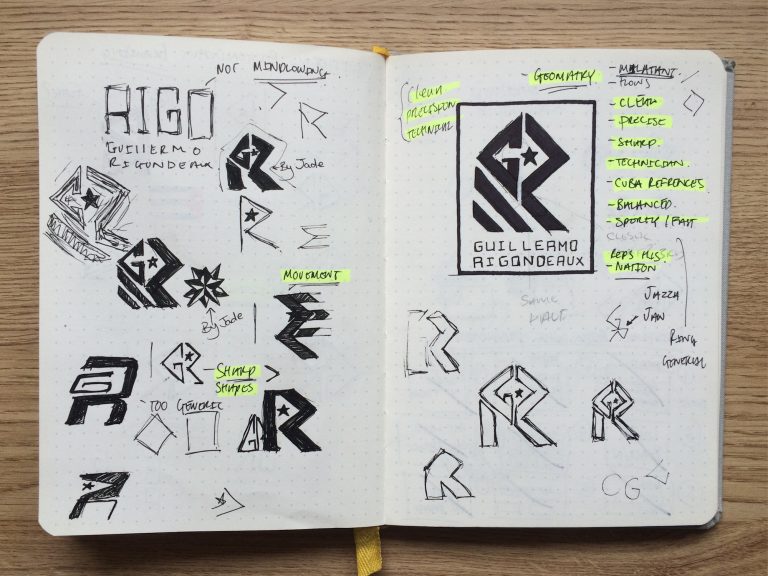 NOT MINDLOWING
RIGO
GUILLERMO
RIGONDEAUX
By Jade
MOVEMENT
By Jade
GR
SHARP
SHAPES
TOO GENERIC
R
Clean
PRECISION
TECHNICAL
GEOMATRY
GR
GUILLERMO
RIGONDEAUX
- FLOWS
- CLEAN
- PRECISE
- SHARP.
- TECHNICIAN.
- CUBA REFRENCES
- BALANCED.
- SPORTY / FAST
CLASSIC
REPS HIS.
- NATION
JAZZA
JAN
RING
GENERAL
GR
GR
R
CG